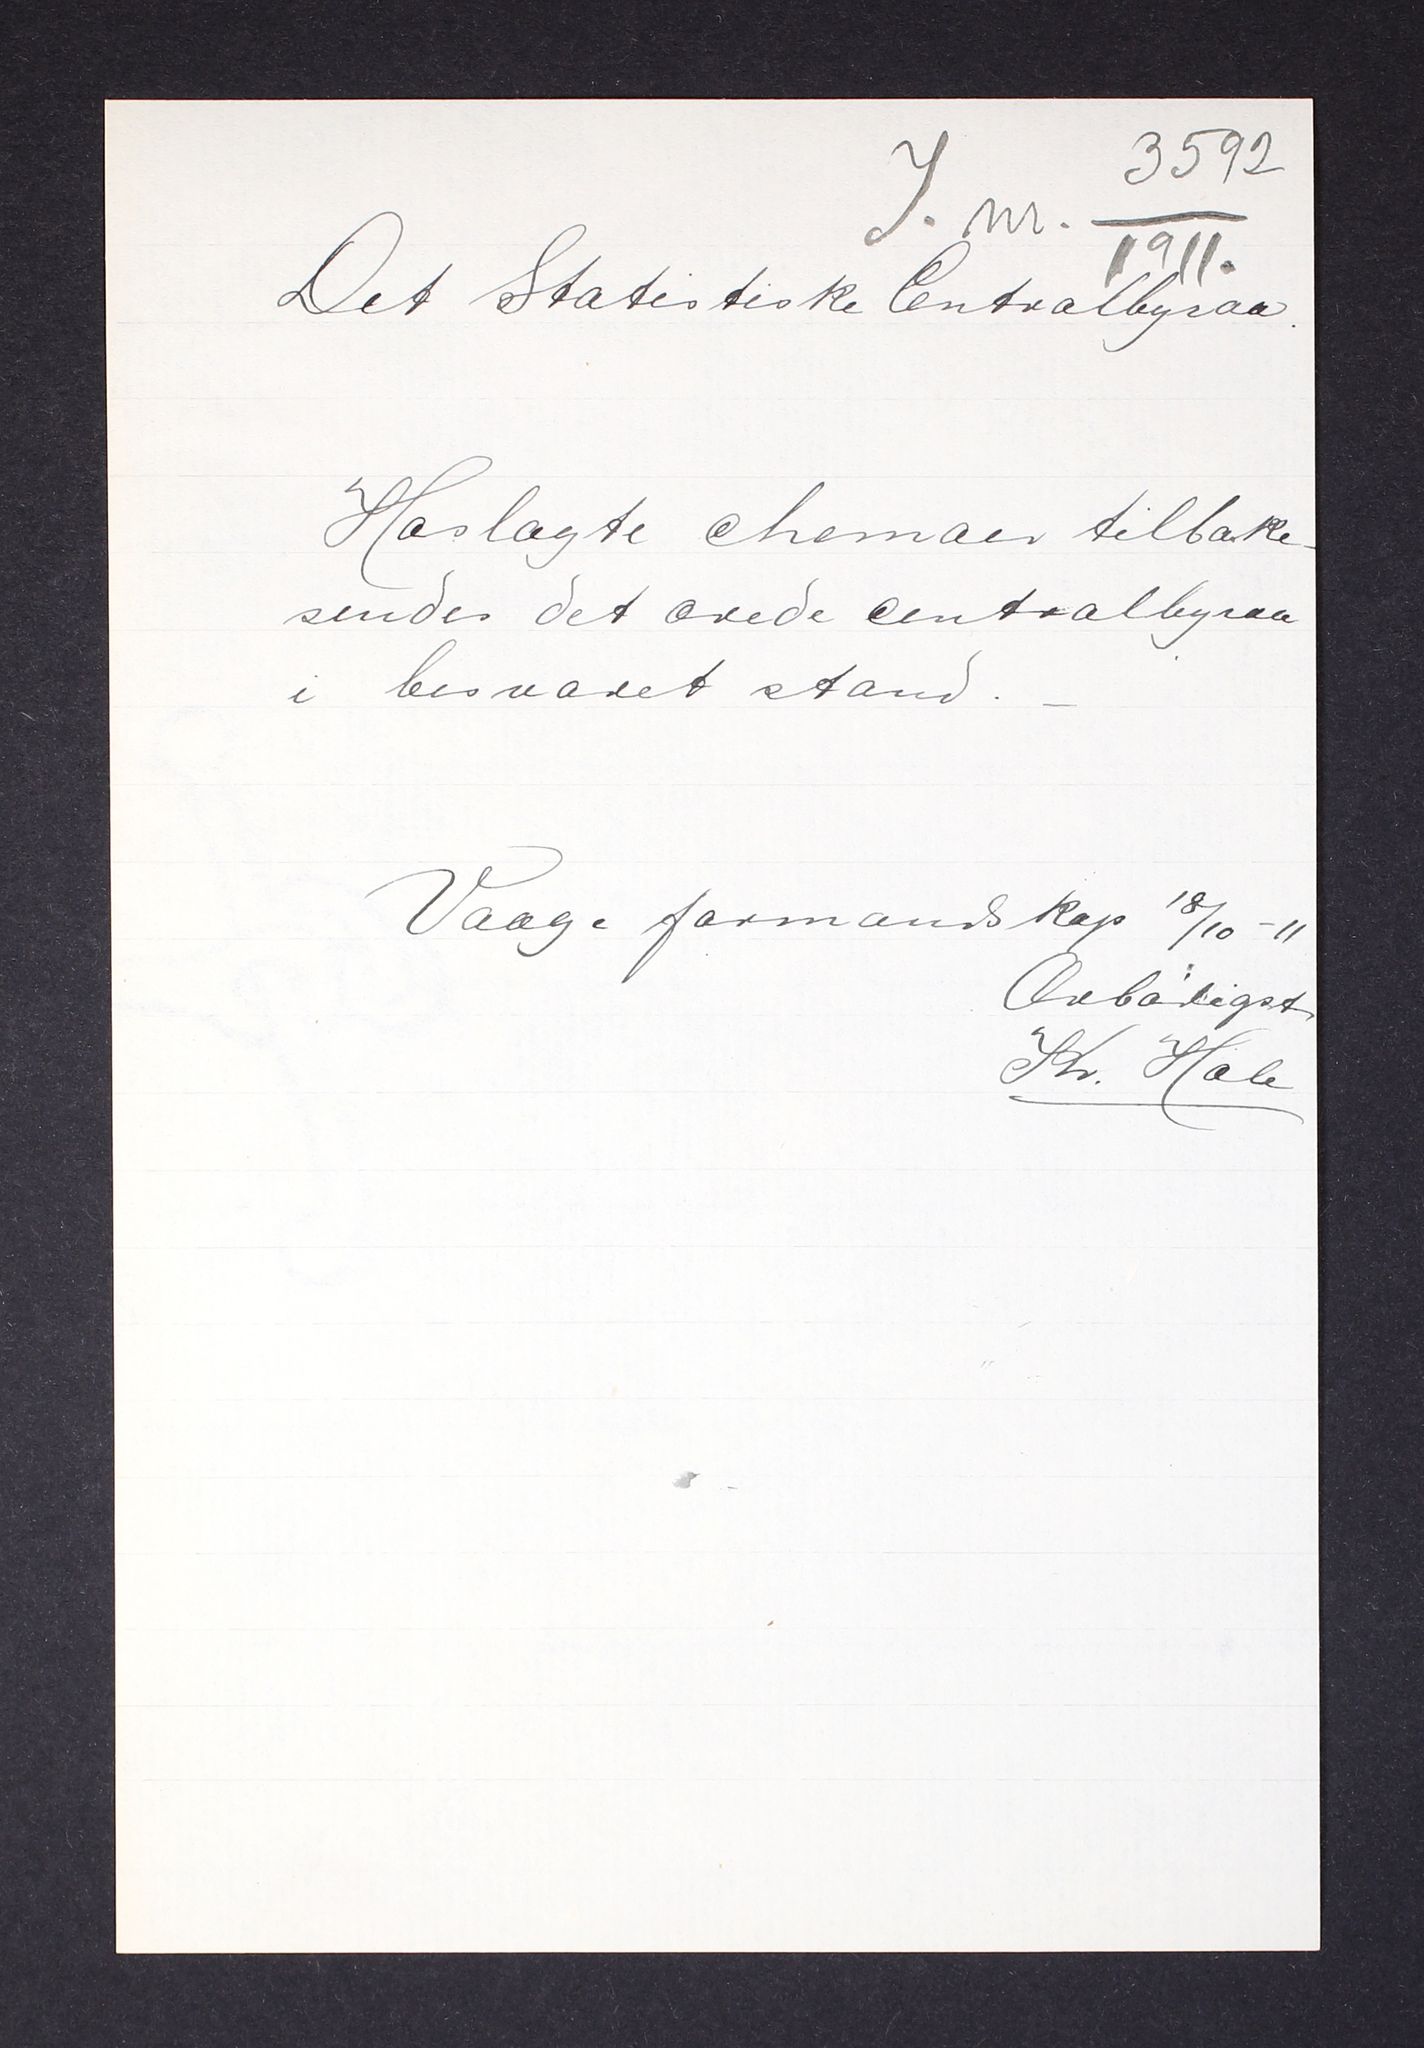 J. nr. 3592
1911.
Det Statistiske Centralbyraa.
Hoslagte chemaer tilbake-
sendes det ærede centralbyraa
i besvaret stand. -
Vaage formandskap 18/10 - 11
Ærbødigst
Kr. Hole